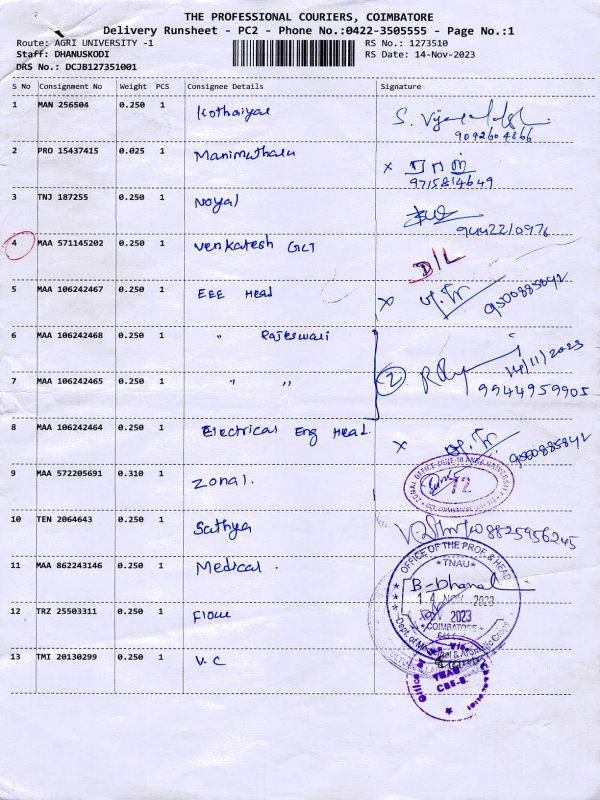 THE PROFESSIONAL COURIERS, COIMBATORE
Delivery Runsheet - PC2 - Phone No.:0422-3505555 - Page No.:1
Route: AGRI UNIVERSITY -1 RS No.: 1273510
Staff: DHANUSKODI RS Date: 14-Nov-2023
DRS No.: DCJB127351001
S No Consignment No Weight PCS Consignee Details Signature
1 MAN 256504 0.250 1 Kothaiyal
9092604866
2 PRO 15437415 0.025 1 Manimutharu
x 9715814649
3 TNJ 187255 0.250 1 Noyal
9442210976
4 MAA 571145202 0.250 1 Venkatesh GCT D/L
5 MAA 106242467 0.250 1 EEE Head x 9500885842
6 MAA 106242468 0.250 1 " Rajeswari
14/11/2023
7 MAA 106242465 0.250 1 " " 2
9944959905
8 MAA 106242464 0.250 1 Electrical Eng Head. x 9500885842
9 MAA 572205691 0.310 1 Zonal. 12
10 TEN 2064643 0.250 1 Sathya 8825956245
11 MAA 862243146 0.250 1 Medical.
OFFICE OF THE PROF. & HEAD
TNAU
B-Dhanal
14 NOV 2023
12 TRZ 25503311 0.250 1 Flow
NOV 2023
COIMBATORE
Dept. of Medicinal & Aromatic Crops
13 TMI 20130299 0.250 1 V.C
TNAU
CBE-3.